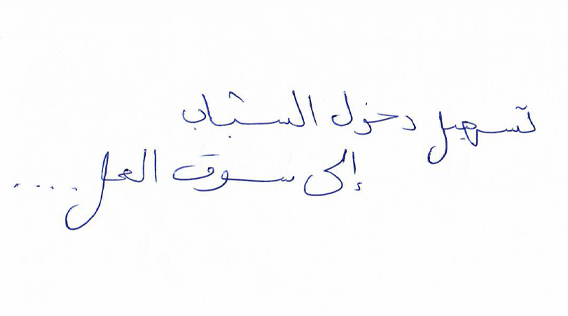 تسهيل دخول الشباب
إلى سوق العمل ....